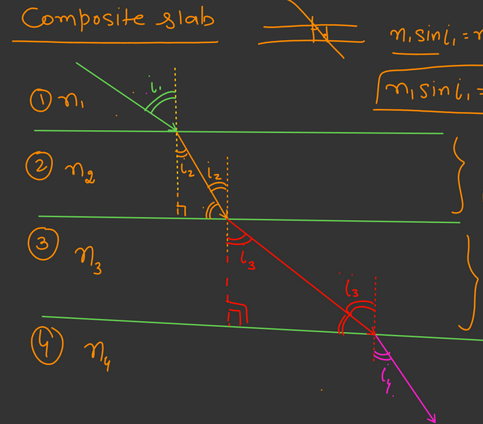 Composite slab
n₁ sin i₁ =
n₁ sin i₁ =
① n₁
i₁
② n₂
i₂
i₂
③ n₃
i₃
i₃
④ n₄
i₄